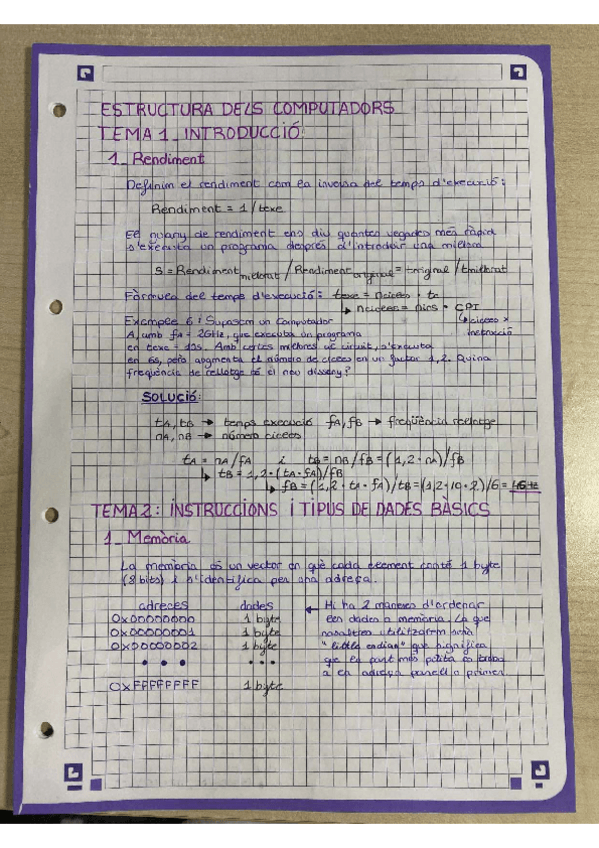 ESTRUCTURA DELS COMPUTADORS
TEMA 1_ INTRODUCCIÓ:
1_ Rendiment
Definim el rendiment com la inversa del temps d'execució:
Rendiment = 1/texe
El guany de rendiment ens diu quantes vegades més ràpid
s'executa un programa després d'introduir una millora
S = Rendiment millorat / Rendiment original = toriginal / tmillorat
Fórmula del temps d'execució: texe = ncicles · tc
→ ncicles = nins · CPI
↳ cicles x
instrucció
Exemple 6: Suposem un computador
A, amb fA = 2GHz, que executa un programa
en texe = 10s. Amb certes millores de circuit, s'executa
en 6s, però augmenta el número de cicles en un factor 1,2. Quina
freqüència de rellotge té el nou disseny?
SOLUCIÓ:
tA, tB → temps execució fA, fB → freqüència rellotge
nA, nB → número cicles
tA = nA/fA i tB = nB/fB = (1,2 · nA)/fB
↳ tB = 1,2 · (tA · fA)/fB
↳ fB = (1,2 · tA · fA)/tB = (1,2 · 10 · 2)/6 = 4GHz
TEMA 2: INSTRUCCIONS i TIPUS DE DADES BÀSICS
1_ Memòria
La memòria és un vector en què cada element conté 1 byte
(8 bits) i s'identifica per una adreça.
adreces dades
0x00000000 1 byte
0x00000001 1 byte
0x00000002 1 byte
• • • • • •
0xFFFFFFFF 1 byte
← Hi ha 2 maneres d'ordenar
les dades a memòria. La que
nosaltres utilitzarem serà
"little endian" que significa
que la part més petita es troba
a la adreça primer.